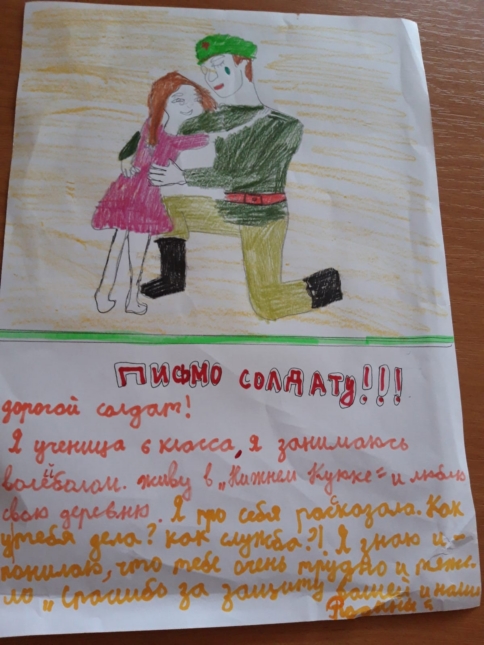 ПИСЬМО СОЛДАТУ!!!
дорогой солдат!
Я ученица 6 класса, Я занимаюсь
волейболом. живу в „Нижнем Куюке" и люблю
свою деревню. Я про себя расказала. Как
утебя дела? как служба?! Я знаю и
понимаю, что тебе очень трудно и тяже-
ло „Спасибо за защиту вашей и нашей
Родины"